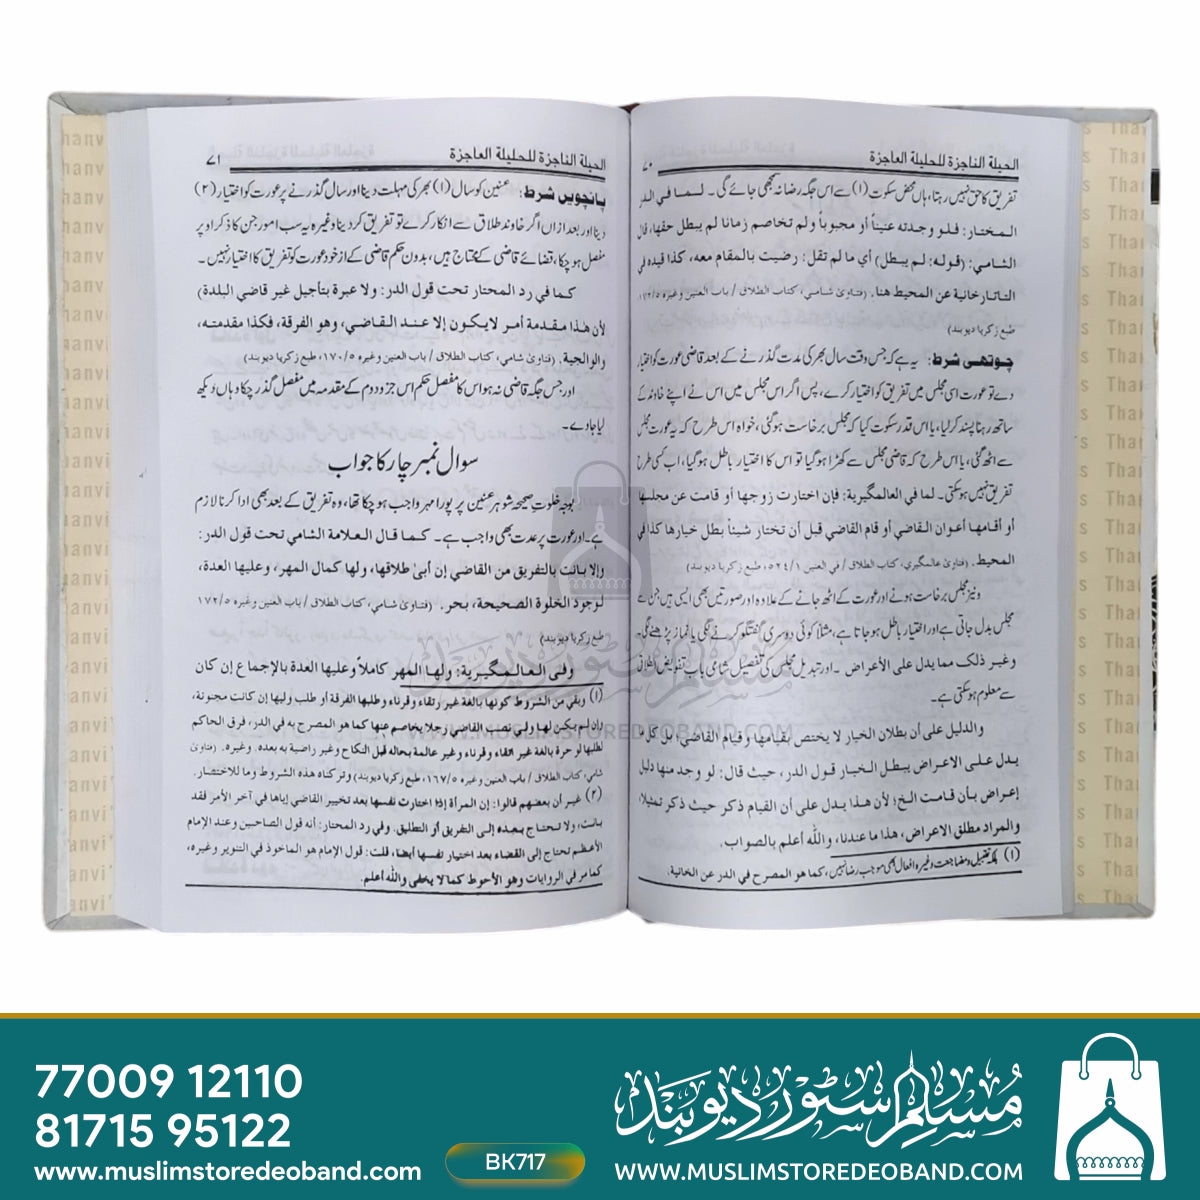 الحيلة الناجزة للحليلة العاجزة
٧٠
تفریق کا حق نہیں رہتا، ہاں محض سکوت (۱) سے اس جگہ رضا نہ سمجھی جائے گی۔ لـمـا في الدر
المختار: فـلـو وجدته عنيناً أو مجبوباً ولم تخاصم زمانا لم يبطل حقها، قال
الشامي: (قوله: لم يبطل) أي ما لم تقل: رضيت بالمقام معه، كذا قيده في
التاتارخانية عن المحيط هنا. (فتاوی شامی، کتاب الطلاق / باب العنین وغیرہ
طبع زکریا دیوبند)
چوتھی شرط: یہ ہے کہ جس وقت سال بھر کی مدت گذرنے کے بعد قاضی عورت کو اختیار
دے تو عورت اسی مجلس میں تفریق کو اختیار کرے، پس اگر اس مجلس میں اس نے اپنے خاوند کے
ساتھ رہنا پسند کرلیا، یا اس قدر سکوت کیا کہ مجلس برخاست ہوگئی، خواہ اس طرح کہ یہ عورت مجلس
سے اٹھ گئی، یا اس طرح کہ قاضی مجلس سے کھڑا ہوگیا تو اس کا اختیار باطل ہوگیا، اب کسی طرح
تفریق نہیں ہوسکتی۔ لما في العالمگيرية: فإن اختارت زوجها أو قامت عن مجلسها
أو أقامها أعوان القاضي أو قام القاضي قبل أن تختار شيئاً بطل خيارها كذا في
المحيط. (فتاویٰ عالمگیری، کتاب الطلاق / في العنین ۵۲٤/۱، طبع زکریا دیوبند)
ونیز مجلس برخاست ہونے اور عورت کے اٹھ جانے کے علاوہ اور صورتیں بھی ایسی ہیں جن سے
مجلس بدل جاتی ہے اور اختیار باطل ہوجاتا ہے، مثلا کوئی دوسری گفتگو کرنے لگی یا نماز پڑھنے لگی،
وغير ذلك مما يدل على الأعراض۔ اور تبدیل مجلس کی تفصیل شامی باب تفویض الطلاق
سے معلوم ہوسکتی ہے۔
والدليل على أن بطلان الخيار لا يختص بقيامها وقيام القاضي، بل كل
يدل على الاعراض يبطل الخيار قول الدر، حيث قال: لو وجد منها دليل
إعراض بأن قامت الخ؛ لأن هذا يدل على أن القيام ذكر حيث ذكر تمثيلا،
والمراد مطلق الاعراض، هذا ما عندنا، والله أعلم بالصواب.
(۱) بلکہ تقبیل ومضاجعت وغیرہ افعال بھی موجب رضا نہیں، كما هو المصرح في الدر عن الخانية.
الحيلة الناجزة للحليلة العاجزة
٧١
پانچویں شرط: عنین کو سال (۱) بھر کی مہلت دینا اور سال گذرنے پر عورت کو اختیار (۲)
دینا اور بعد ازاں اگر خاوند طلاق سے انکار کرے تو تفریق کردینا وغیرہ یہ سب امور جن کا ذکر اوپر
مفصل ہوچکا، قضائے قاضی کے محتاج ہیں، بدون حکم قاضی کے از خود عورت کو تفریق کا اختیار نہیں۔
كما في رد المحتار تحت قول الدر: ولا عبرة بتأجيل غير قاضي البلدة)
لأن هذا مقدمة أمر لا يكون إلا عند القاضي، وهو الفرقة، فكذا مقدمته،
والوالجية. (فتاویٰ شامی، کتاب الطلاق / باب العنین وغیرہ ۱۷۰/۵، طبع زکریا دیوبند)
اور جس جگہ قاضی نہ ہو اس کا مفصل حکم اس جزو دوم کے مقدمہ میں مفصل گذر چکا وہاں دیکھ
لیا جاوے۔
سوال نمبر چار کا جواب
بوجہ خلوت صحیحہ شوہر عنین پر پورا مہر واجب ہوچکا تھا، وہ تفریق کے بعد بھی ادا کرنا لازم
ہے۔ اور عورت پر عدت بھی واجب ہے۔ كما قال العلامة الشامي تحت قول الدر:
وإلا بانت بالتفريق من القاضي إن أبىٰ طلاقها، ولها كمال المهر، وعليها العدة،
لوجود الخلوة الصحيحة، بحر. (فتاویٰ شامی، کتاب الطلاق / باب العنین وغیرہ ۱۷۲/۵
طبع زکریا دیوبند)
وفي العالمگيرية: ولها المهر كاملاً وعليها العدة بالإجماع إن كان
(۱) وبقي من الشروط كونها بالغة غير رتقاء وقرناء وطلبها الفرقة أو طلب وليها إن كانت مجنونة،
وإن لم يكن لها ولي نصب القاضي رجلا يخاصم عنها كما هو المصرح به في الدر، فرق الحاكم
لطلبها لو حرة بالغة غير رتقاء وقرناء وغير عالمة بحاله قبل النكاح وغير راضية به بعده. وغيره. (فتاویٰ
شامی، کتاب الطلاق / باب العنین وغیرہ ۱٦۷/۵، طبع زکریا دیوبند) وتركناه هذه الشروط وما للاختصار.
(۲) غير أن بعضهم قالوا: إن المرأة إذا اختارت نفسها بعد تخيير القاضي إياها في آخر الأمر فقد
بانت، ولا تحتاج بعده إلى التفريق أو التطليق. وفي رد المحتار: أنه قول الصاحبين وعند الإمام
الأعظم تحتاج إلى القضاء بعد اختيار نفسها أيضا، قلت: قول الإمام هو المأخوذ في التنوير وغيره،
كما مر في الروايات وهو الأحوط كما لا يخفى والله أعلم.
مسلم سٹور دیوبند
WWW.MUSLIMSTOREDEOBAND.COM
77009 12110
81715 95122
www.muslimstoredeoband.com
BK717
مسلم سٹور دیوبند
WWW.MUSLIMSTOREDEOBAND.COM